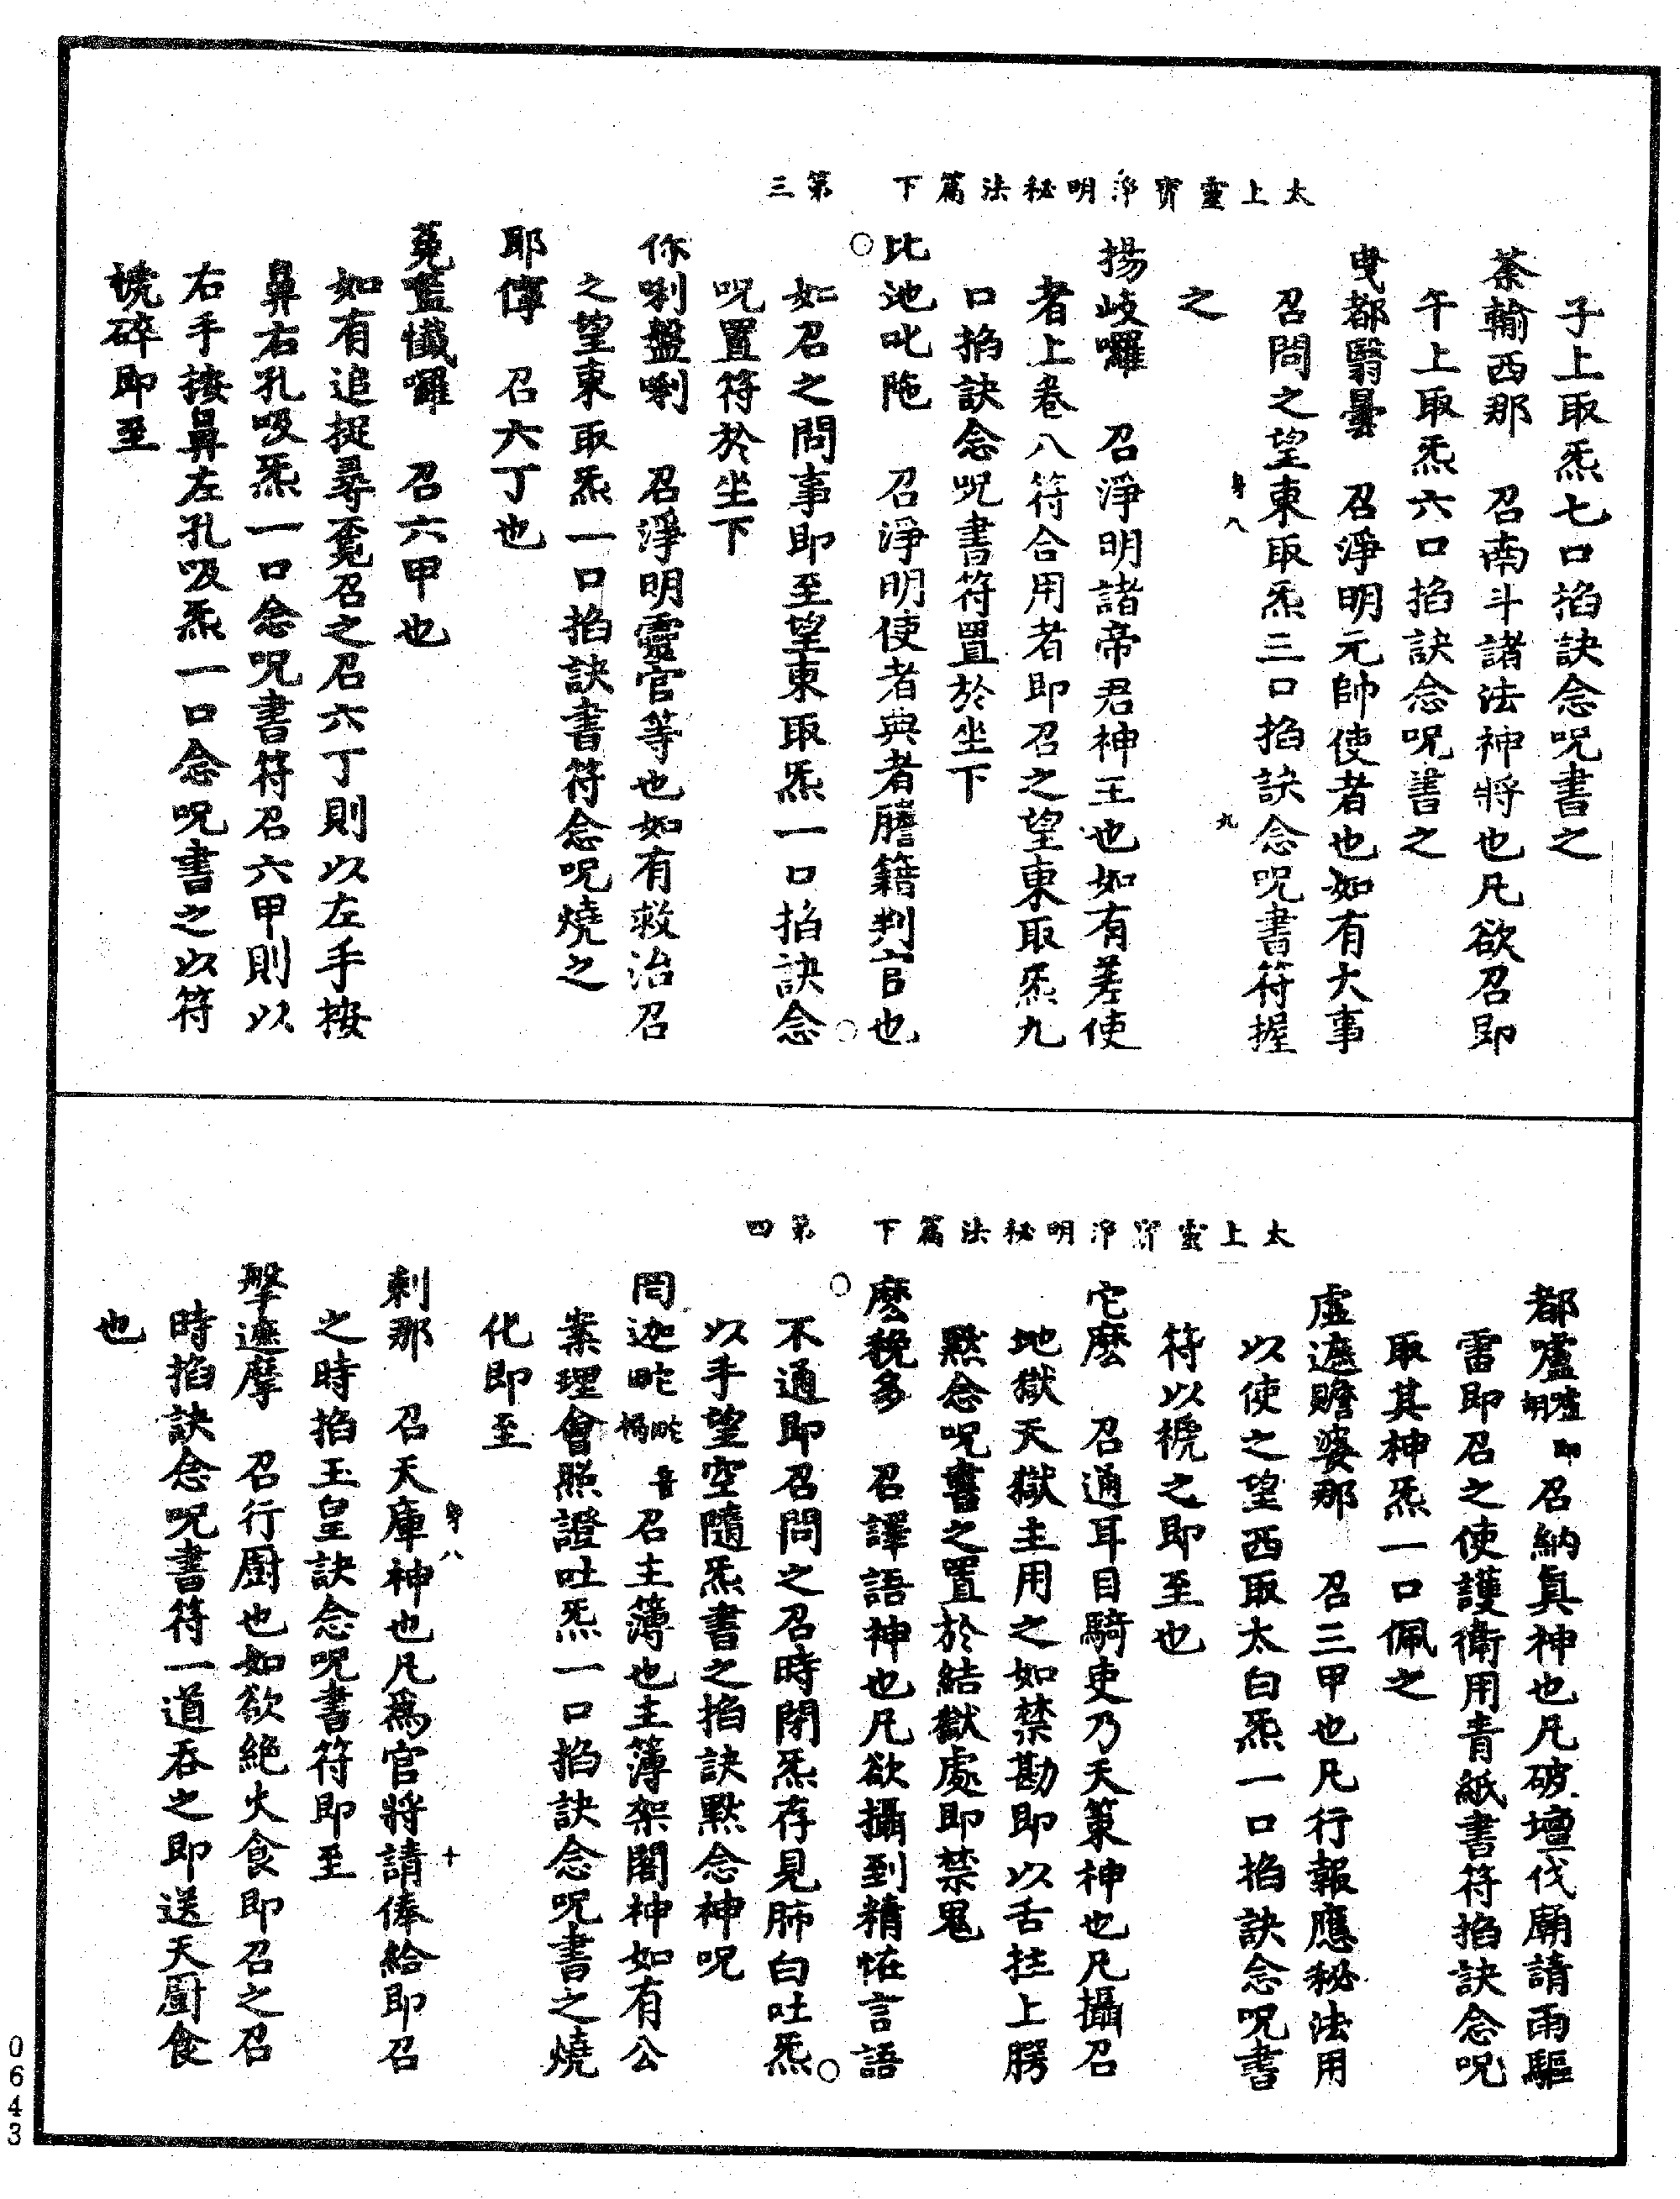 太上靈寶淨明秘法篇下　第三
子上取炁七口掐訣念呪書之
荼輸西那　召南斗諸法神將也凡欲召即
午上取炁六口掐訣念呪書之
曳都翳曇　召淨明元帥使者也如有大事
召問之望東取炁三口掐訣念呪書符握
之
身八　九
揚岐囉　召淨明諸帝君神王也如有差使
者上卷八符合用者即召之望東取炁九
口掐訣念呪書符置於坐下
比池叱陁　召淨明使者典者謄籍判官也
如召之問事即至望東取炁一口掐訣念
呪置符於坐下
你唎盤唎　召淨明靈官等也如有救治召
之望東取炁一口掐訣書符念呪燒之
耶傳　召六丁也
菟藍懺囉　召六甲也
如有追捉尋覔召之召六丁則以左手按
鼻右孔吸炁一口念呪書符召六甲則以
右手按鼻左孔吸炁一口念呪書之以符
燒碎即至
太上靈寶淨明秘法篇下　第四
都嚧嚧即胡召納眞神也凡破壇伐廟請雨驅
雷即召之使護衛用青紙書符掐訣念呪
取其神炁一口佩之
虛遮贍婆那　召三甲也凡行報應秘法用
以使之望西取太白炁一口掐訣念呪書
符以褫之即至也
宅麽　召通耳目騎吏乃天策神也凡攝召
地獄天獄主用之如禁勘即以舌拄上腭
黙念呪書之置於結獄處即禁鬼
麽䅚多　召譯語神也凡欲攝到精恠言語
不通即召問之召時閉炁存見肺白吐炁
以手望空隨炁書之掐訣黙念神呪
罔迦㽿㽿音楇召主簿也主簿架閣神如有公
案理會照證吐炁一口掐訣念呪書之燒
化即至
身八　十
刺那　召天庫神也凡爲官將請俸給即召
之時掐玉皇訣念呪書符即至
犂遮摩　召行厨也如欲絶火食即召之召
時掐訣念呪書符一道吞之即送天厨食
也
0643